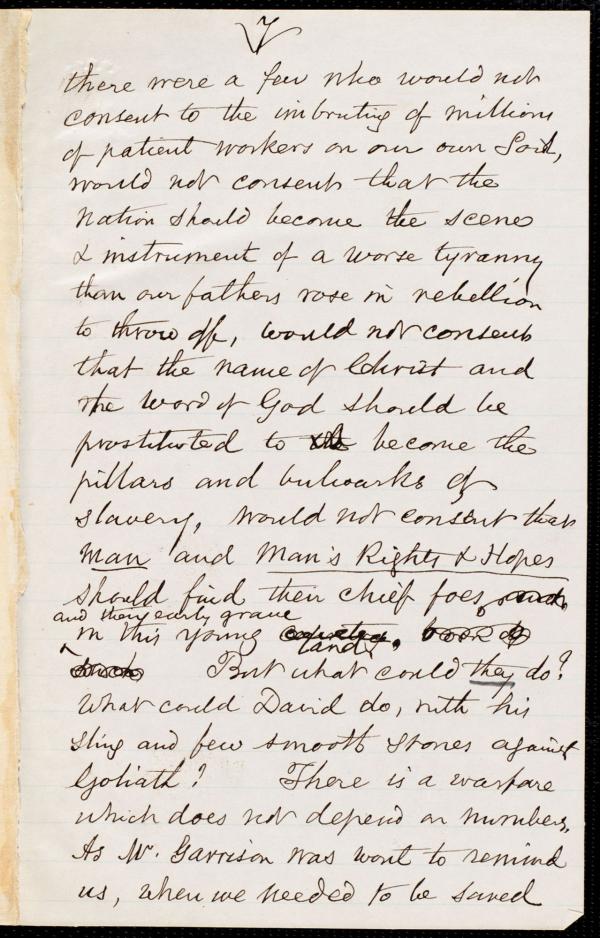 7
there were a few who would not
consent to the imbruting of millions
of patient workers on our own Soil,
would not consent that the
Nation should become the scene
& instrument of a worse tyranny
than our fathers rose in rebellion
to throw off, would not consent
that the name of Christ and
the word of God should be
prostituted to become the
pillars and bulwarks of
slavery, would not consent that
Man and Man's Rights & Hopes
should find their chief foes,
and their early grave
in this young country,
land
But what could they do?
What could David do, with his
sling and few smooth stones against
Goliath? There is a warfare
which does not depend on numbers.
As Mr. Garrison was wont to remind
us, when we needed to be saved